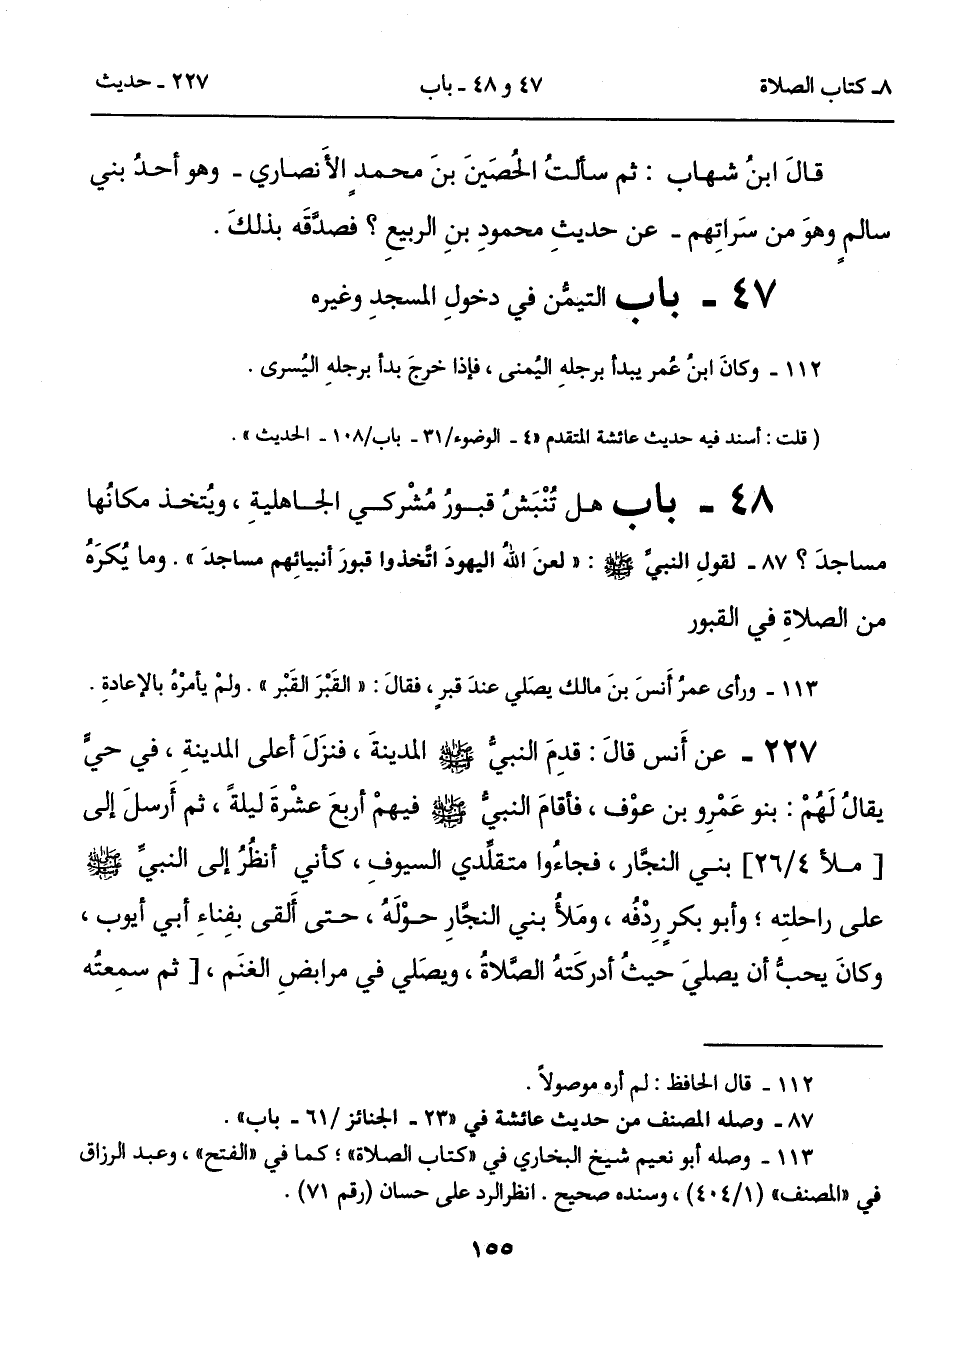 ٨ـ كتاب الصلاة ٤٧ و ٤٨ ـ باب ٢٢٧ ـ حديث
قالَ ابنُ شهاب : ثم سألتُ الحُصَينَ بنَ محمدٍ الأنصاري ـ وهو أحدُ بني
سالمٍ وهوَ من سَراتِهم ـ عن حديثِ محمودِ بنِ الربيعِ ؟ فصدَّقَه بذلكَ .
٤٧ ـ باب التيمُّن في دخولِ المسجدِ وغيره
١١٢ ـ وكانَ ابنُ عُمر يبدأ برجلهِ اليُمنى ، فإذا خرجَ بدأ برجلهِ اليُسرى .
( قلت : أسند فيه حديث عائشة المتقدم «٤ ـ الوضوء/٣١ ـ باب/١٠٨ ـ الحديث» .
٤٨ ـ باب هل تُنْبَشُ قبورُ مُشْركي الجاهليةِ ، ويُتخذ مكانُها
مساجدَ ؟ ٨٧ ـ لقولِ النبيِّ ﷺ : « لعنَ اللهُ اليهودَ اتَّخذوا قبورَ أنبيائِهم مساجدَ » . وما يُكرَهُ
من الصلاةِ في القبور
١١٣ ـ ورأى عمرُ أَنسَ بنَ مالك يصَلي عندَ قبرٍ ، فقالَ : « القَبْرَ القَبْر » . ولمْ يأمرْهُ بالإعادةِ .
٢٢٧ ـ عن أَنس قالَ : قدِمَ النبيُّ ﷺ المدينةَ ، فنزَلَ أعلى المدينةِ ، في حيٍّ
يقالُ لَهُمْ : بنو عَمْرِو بن عوْف ، فأقامَ النبيُّ ﷺ فيهمْ أربعَ عشْرةَ ليلةً ، ثم أَرسلَ إلى
[ ملأ ٤/٢٦] بني النجَّار ، فجاءُوا متقلِّدي السيوفِ ، كأني أنظُرُ إلى النبيِّ ﷺ
على راحلتِه ؛ وأبو بكرٍ رِدْفُه ، ومَلأُ بني النجَّارِ حوْلَهُ ، حتى أَلقى بفِناءِ أبي أيوب ،
وكانَ يحبُّ أن يصليَ حيثُ أدركتهُ الصَّلاةُ ، ويصَلي في مرابضِ الغنَم ، [ ثم سمعتُه
١١٢ ـ قال الحافظ : لم أره موصولاً .
٨٧ ـ وصله المصنف من حديث عائشة في «٢٣ ـ الجنائز /٦١ ـ باب» .
١١٣ ـ وصله أبو نعيم شيخ البخاري في «كتاب الصلاة» ؛ كما في «الفتح» ، وعبد الرزاق
في «المصنف» (١/٤٠٤) ، وسنده صحيح . انظرالرد على حسان (رقم ٧١) .
١٥٥